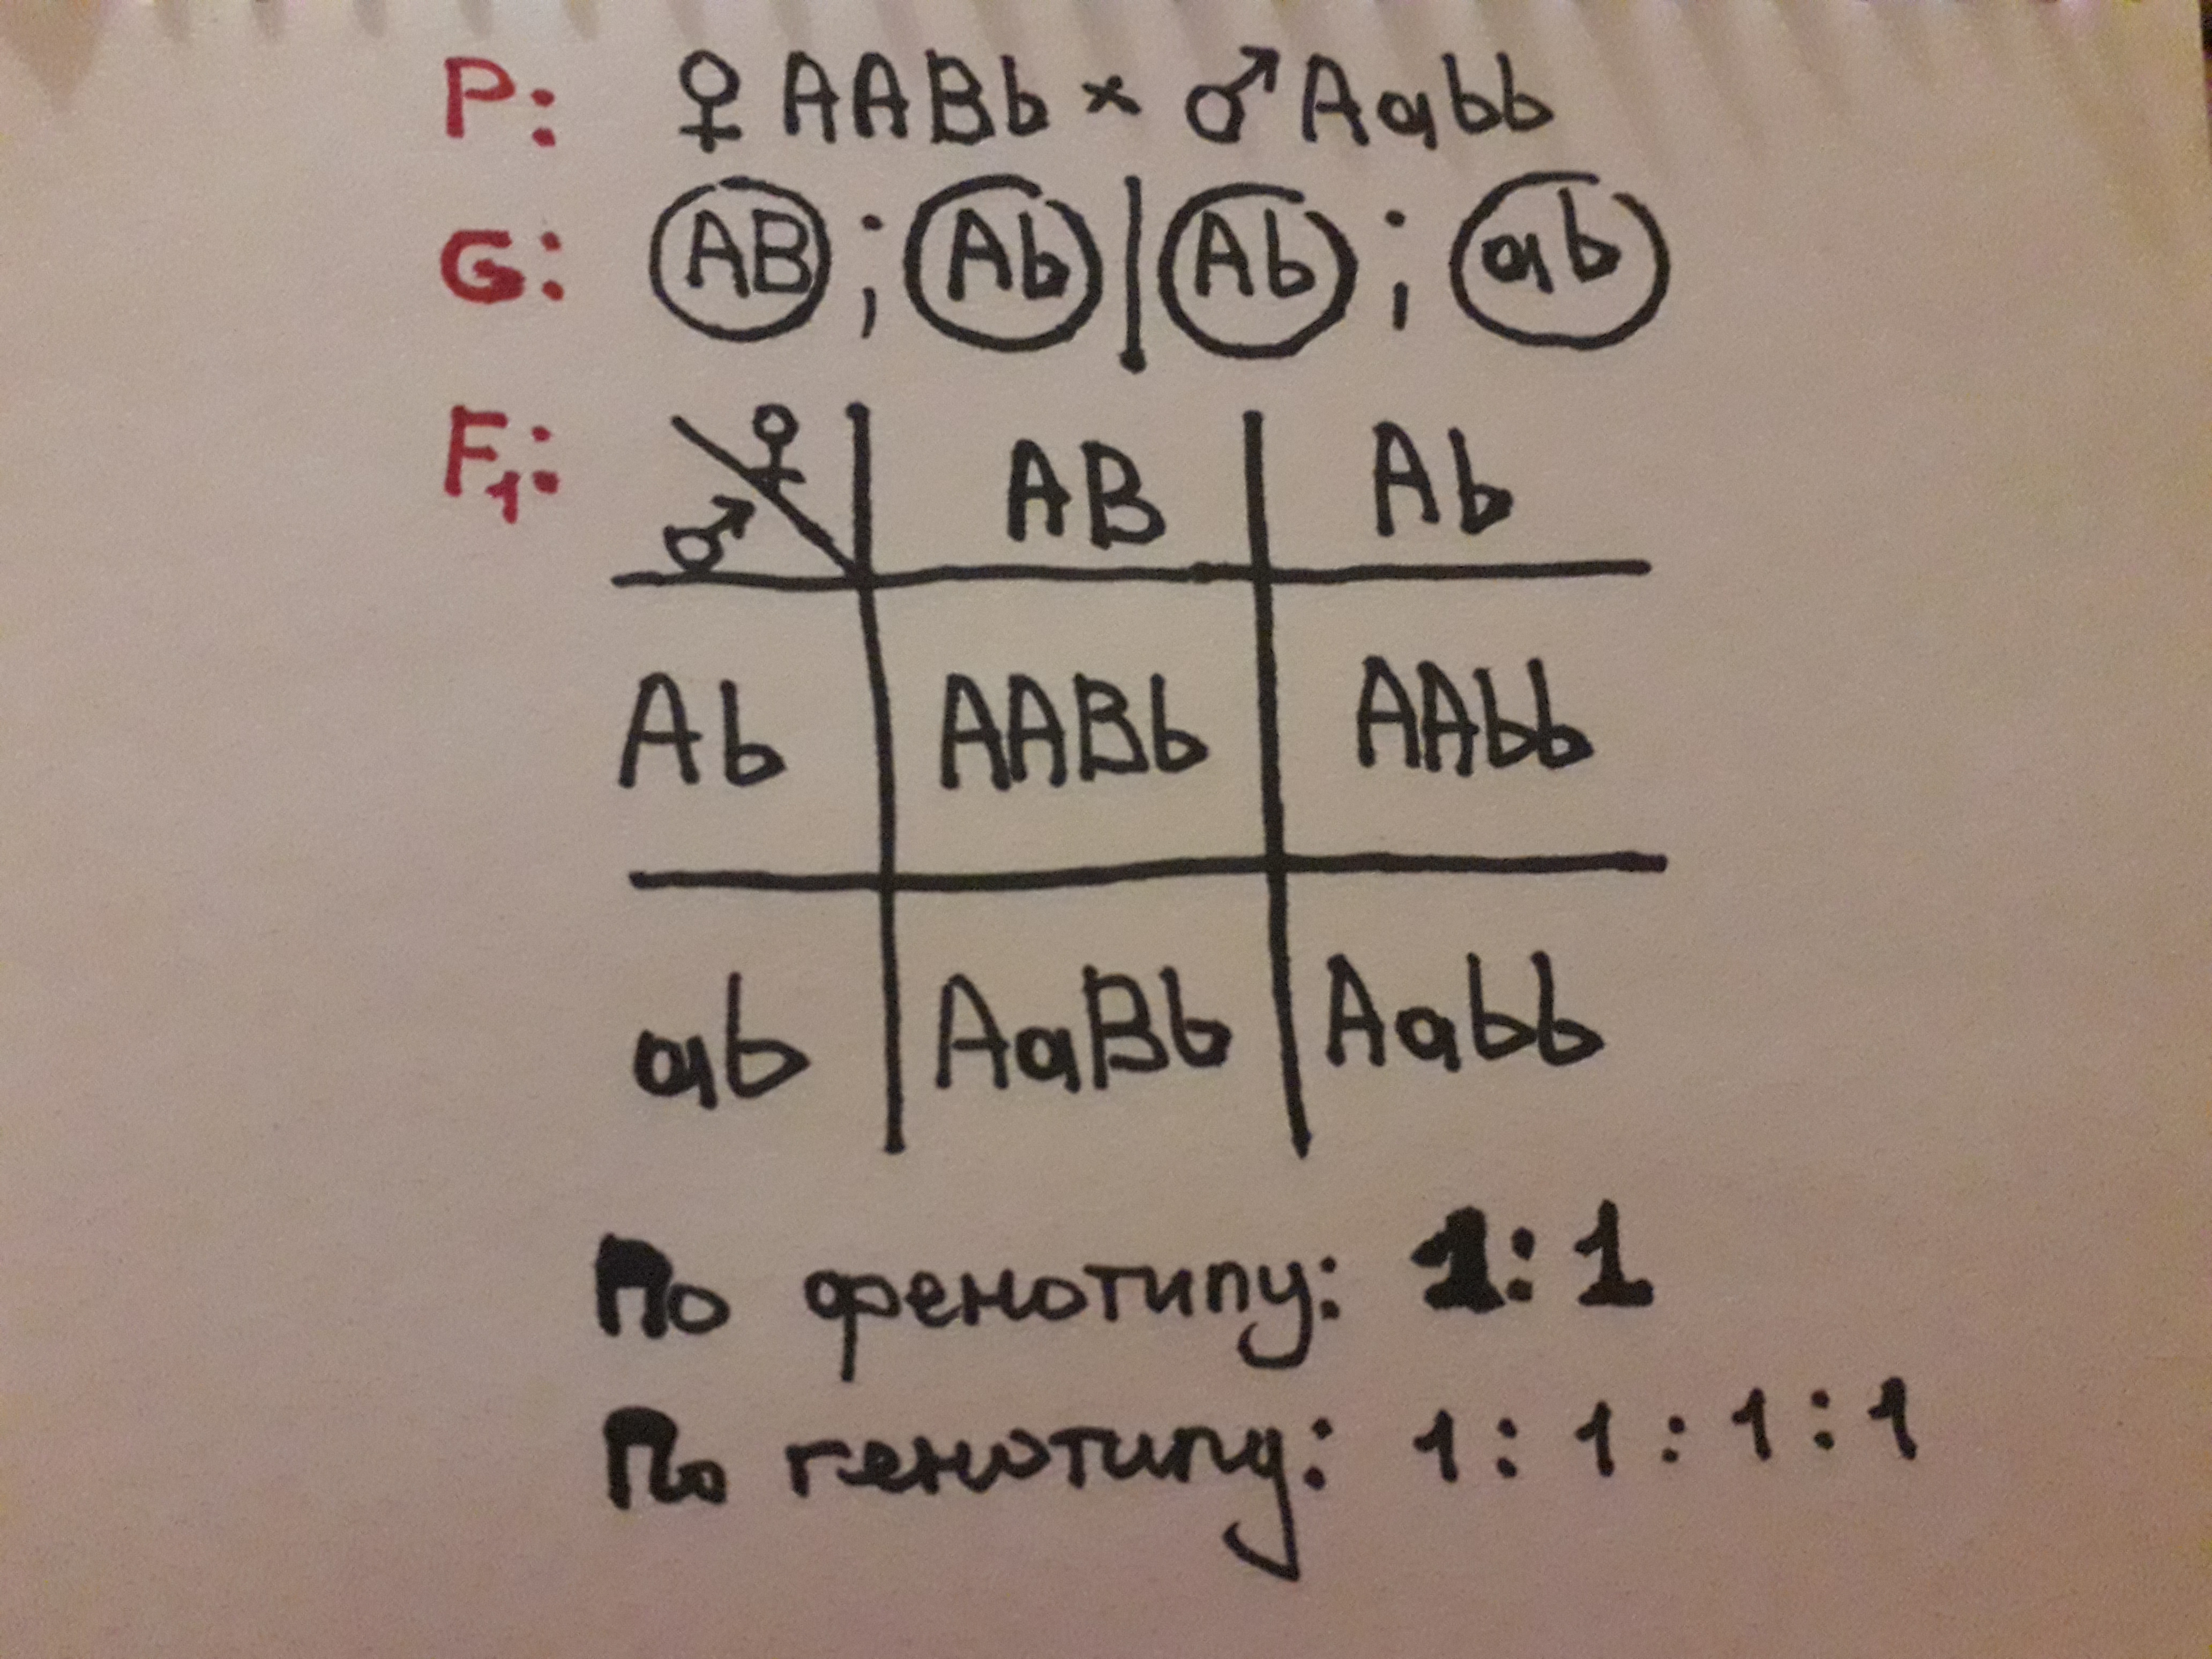 P: ♀ AABb × ♂ Aabb
G: AB ; Ab | Ab ; ab
F1: ♂ ♀ AB Ab
Ab AABb AAbb
ab AaBb Aabb
По фенотипу: 1:1
По генотипу: 1:1:1:1